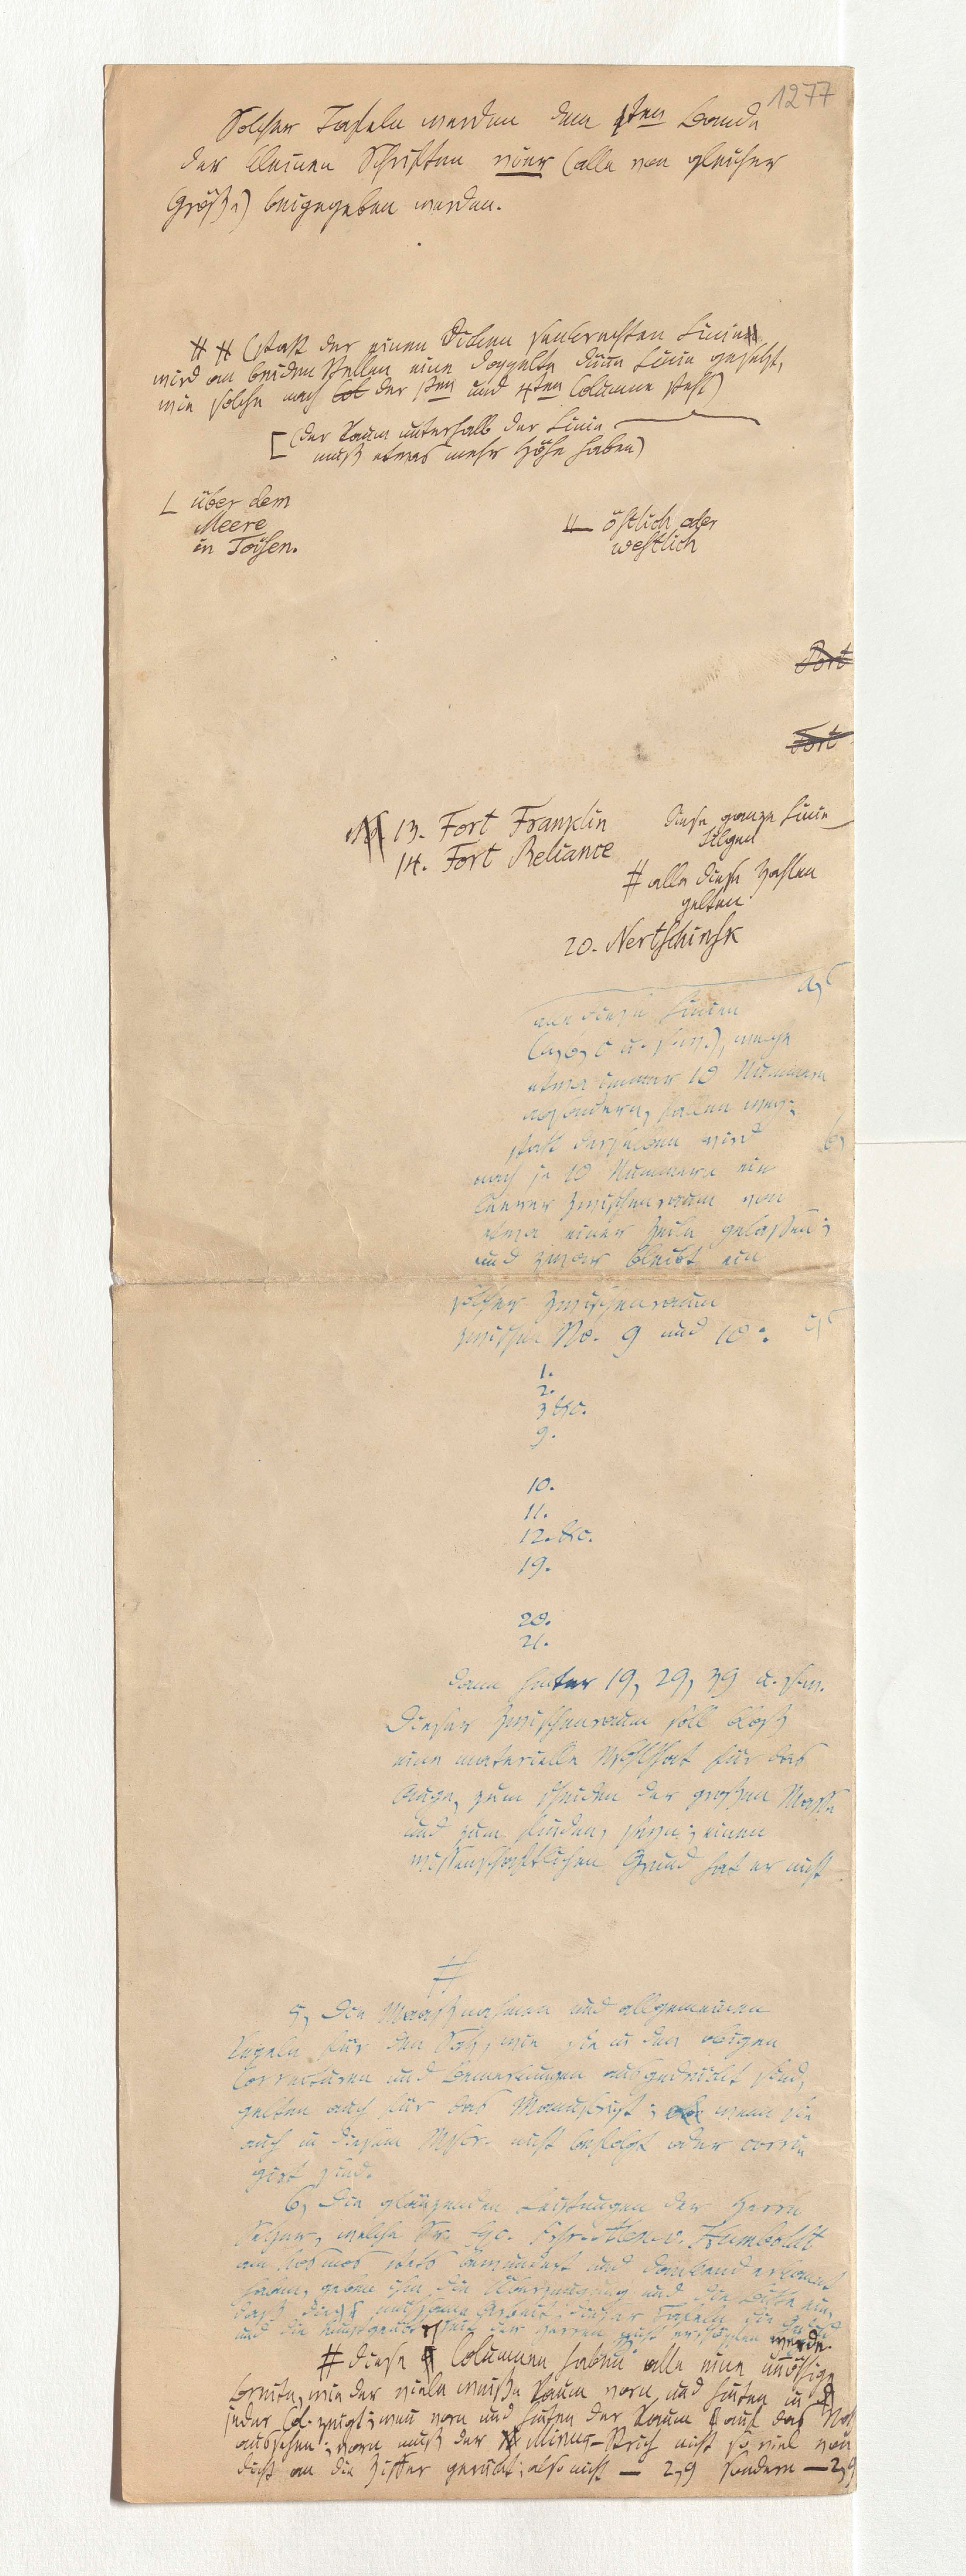 1277
Solcher Tafeln werden dem 1ten Bande
der kleinen Schriften vier (alle von gleicher
Größe) beigegeben werden.
# # (statt der einen dicken senkrechten Linien
wird an beiden Stellen eine doppelte dünne Linie gesetzt,
wie solche nach der 1ten und 4ten Columne steht)
[ (der Raum unterhalb der Linie
muß etwas mehr Höhe haben)
über dem
Meere
in Toisen.
östlich oder
westlich
Fort
Fort
13. Fort Franklin
14. Fort Reliance
diese ganze Linie
tilgen
# alle diese Zahlen
gelten
20. Nertschinsk
a,
alle diese Linien
(a, b, c u. s. w.), welche
etwa immer 10 Nummern
absondern, fallen weg;
statt derselben wird
b,
nach je 10 Nummern ein
leerer Zwischenraum von
etwa einer Zeile gelassen;
und zwar bleibt ein
solcher Zwischenraum
c,
zwischen No. 9 und 10:
1.
2.
3 &c.
9.
10.
11.
12. &c.
19.
20.
21.
dann hinter 19, 29, 39 u. s. w.
Dieser Zwischenraum soll bloß
eine materielle Wohlthat für das
Auge, zum Scheiden der großen Masse
und zum Finden, sein; einen
wissenschaftlichen Grund hat er nicht
#
5, Die Maaßnahmen und allgemeinen
Regeln für den Satz, wie sie in den obigen
Correcturen und Bemerkungen ausgedrückt sind,
gelten auch für das Manuscript; wenn sie
auch in diesem Mscr. nicht befolgt oder corri-
girt sind.
6, Die glänzenden Leistungen der Herrn
Setzer, welche Se. Exc. Frhr. Alex. v. Humboldt
am Kosmos stets bewundert und dankend erkannt
haben, geben ihm die Überzeugung und die Bitte ein,
daß die mühsame Arbeit dieser Tafeln die Geduld
und die der Herren nicht erschöpfen werde.
# diese Columnen haben alle eine unnöthige
Breite, wie der viele weiße Raum vorn und hinten in
jeder Col. zeigt; vorn und hinten der Raum auf das
vorn muß der Minus-Strich nicht so viel von
dicht an die Ziffer gerückt; also nicht — 2,9 sondern —2,9